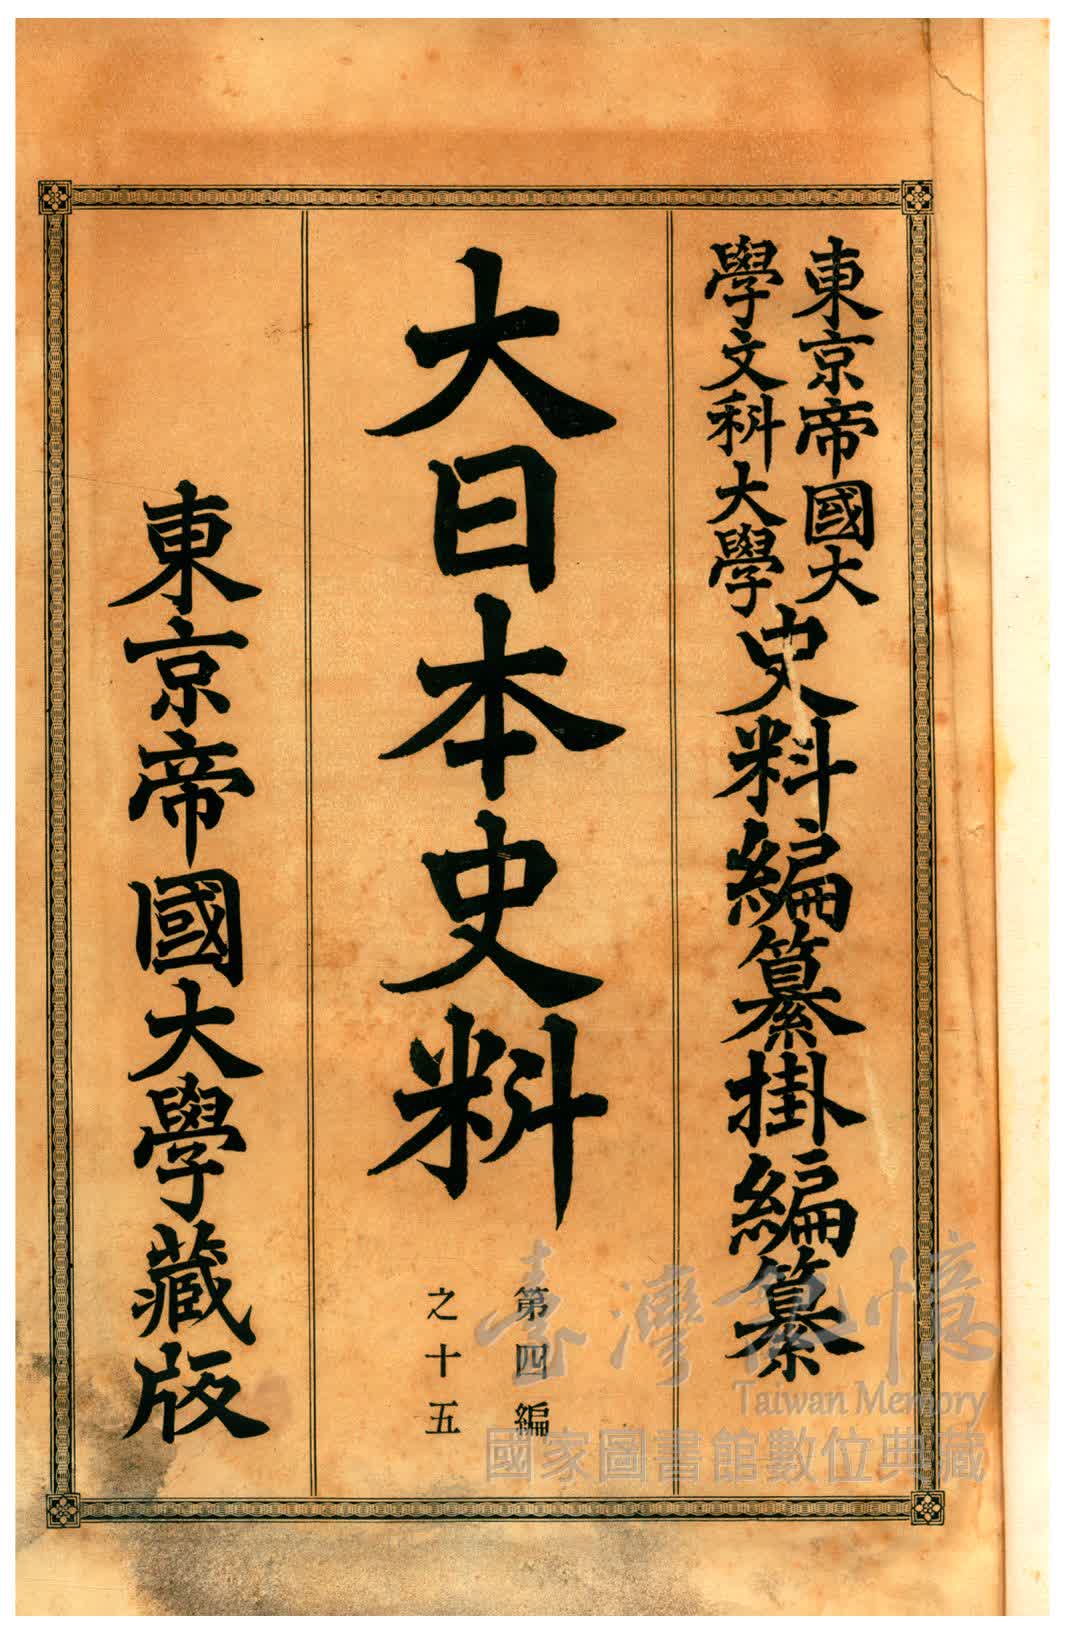 東京帝國大
學文科大學
史料編纂掛編纂
大日本史料
第四編
之十五
東京帝國大學藏版
臺灣記憶
Taiwan Memory
國家圖書館數位典藏